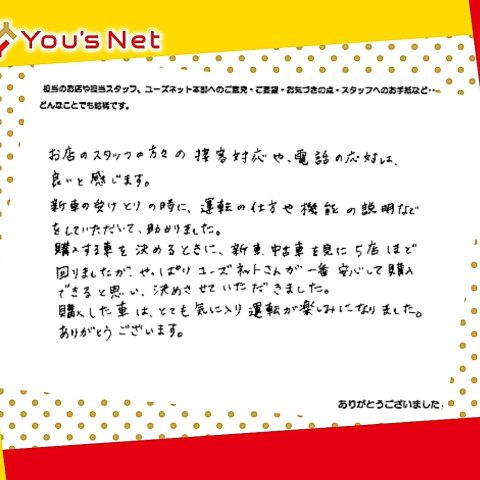 You's Net
担当のお店や担当スタッフ、ユーズネット本部へのご意見・ご要望・お気づきの点・スタッフへのお手紙など…
どんなことでも結構です。
お店のスタッフの方々の接客対応や、電話の応対は、
良いと感じます。
新車の受けとりの時に、運転の仕方や機能の説明など
をしていただいて、助かりました。
購入する車を決めるときに、新車、中古車を見に5店ほど
回りましたが、やっぱりユーズネットさんが一番安心して購入
できると思い、決めさせていただきました。
購入した車は、とても気に入り運転が楽しみになりました。
ありがとうございます。
ありがとうございました